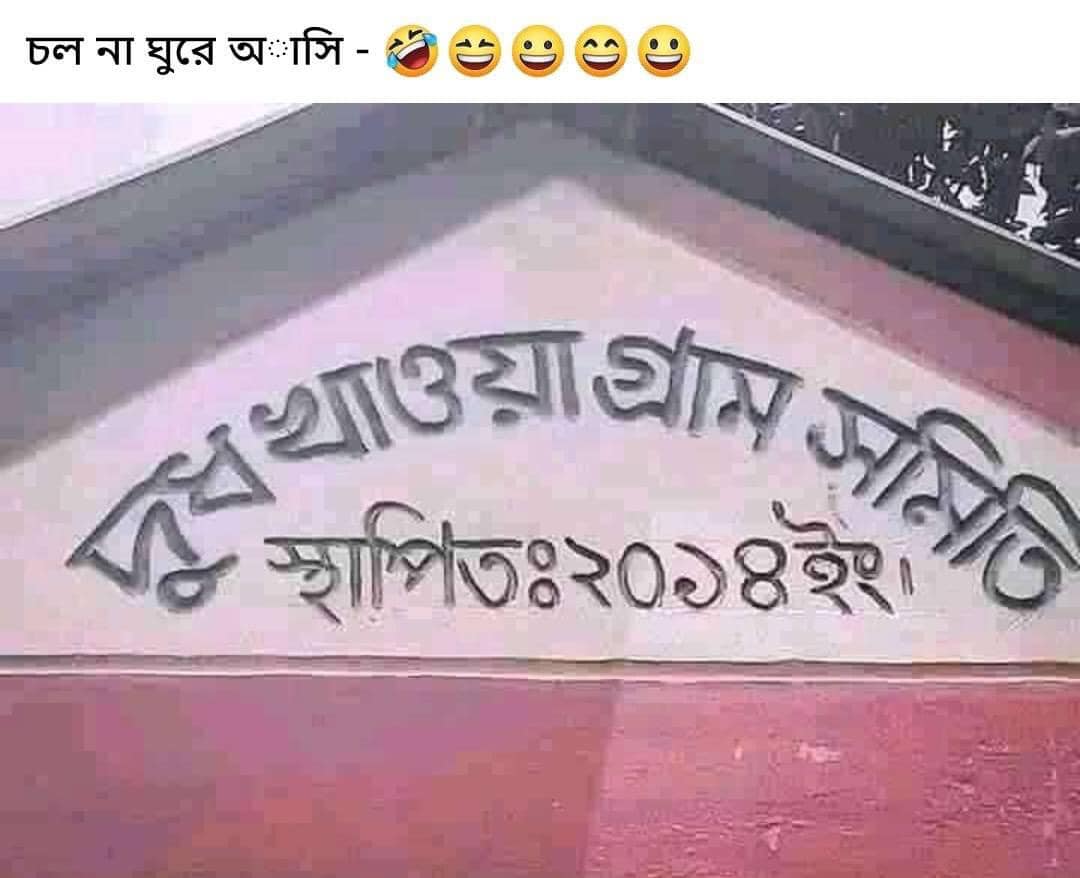 চল না ঘুরে অাসি - 🤣😆😀😄😀
দুধ খাওয়া গ্রাম সমিতি
স্থাপিতঃ২০১৪ইং।